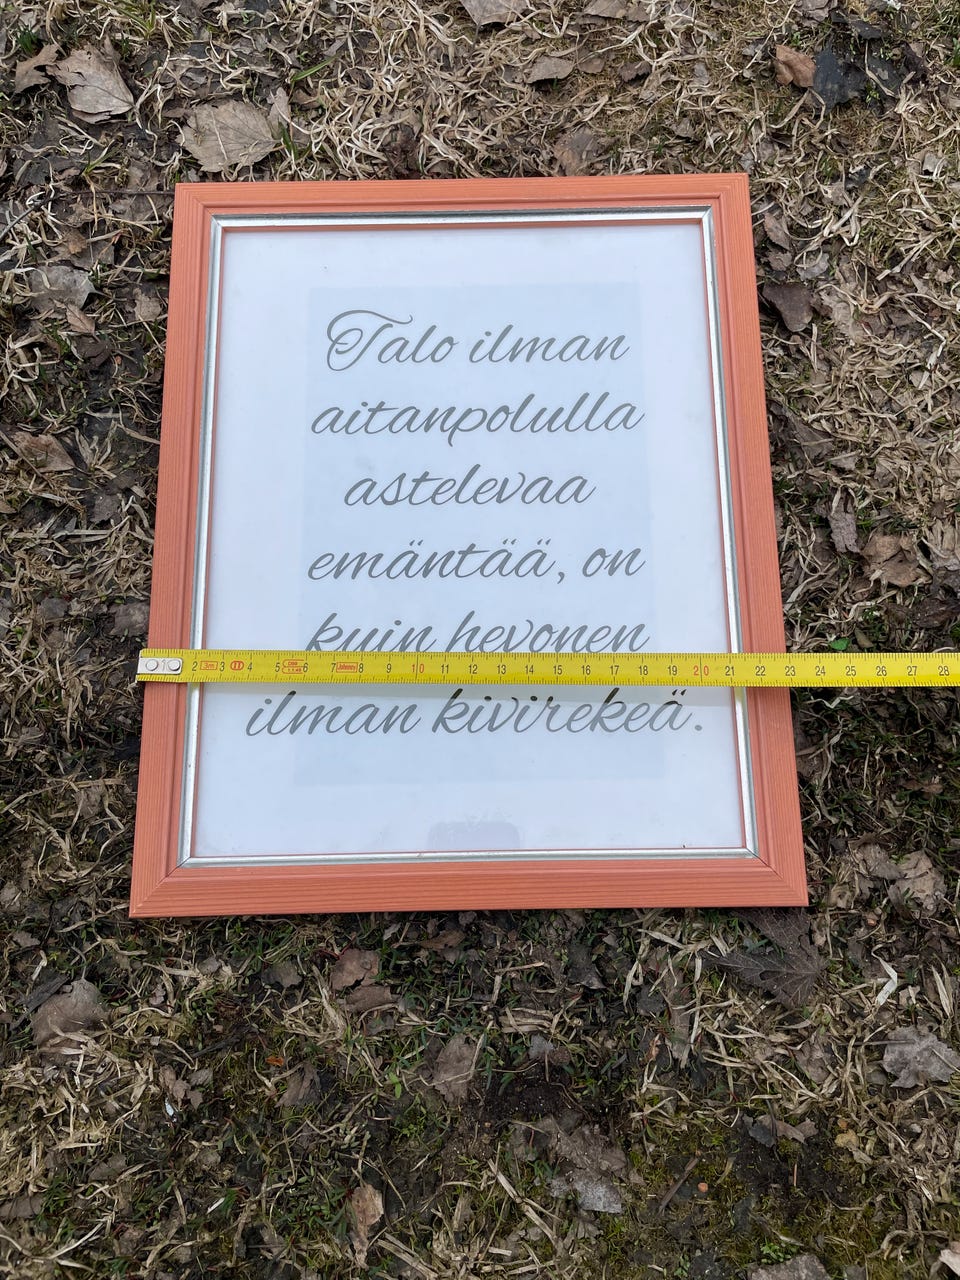 Talo ilman
aitanpolulla
astelevaa
emäntää, on
kuin hevonen
1 2 3m 3 4 5 6 7 8 9 10 11 12 13 14 15 16 17 18 19 20 21 22 23 24 25 26 27 28
ilman kivirekeä.